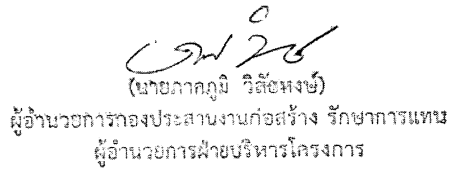 (นายภาคภูมิ วิสัยหงษ์)
ผู้อำนวยการกองประสานงานก่อสร้าง รักษาการแทน
ผู้อำนวยการฝ่ายบริหารโครงการ